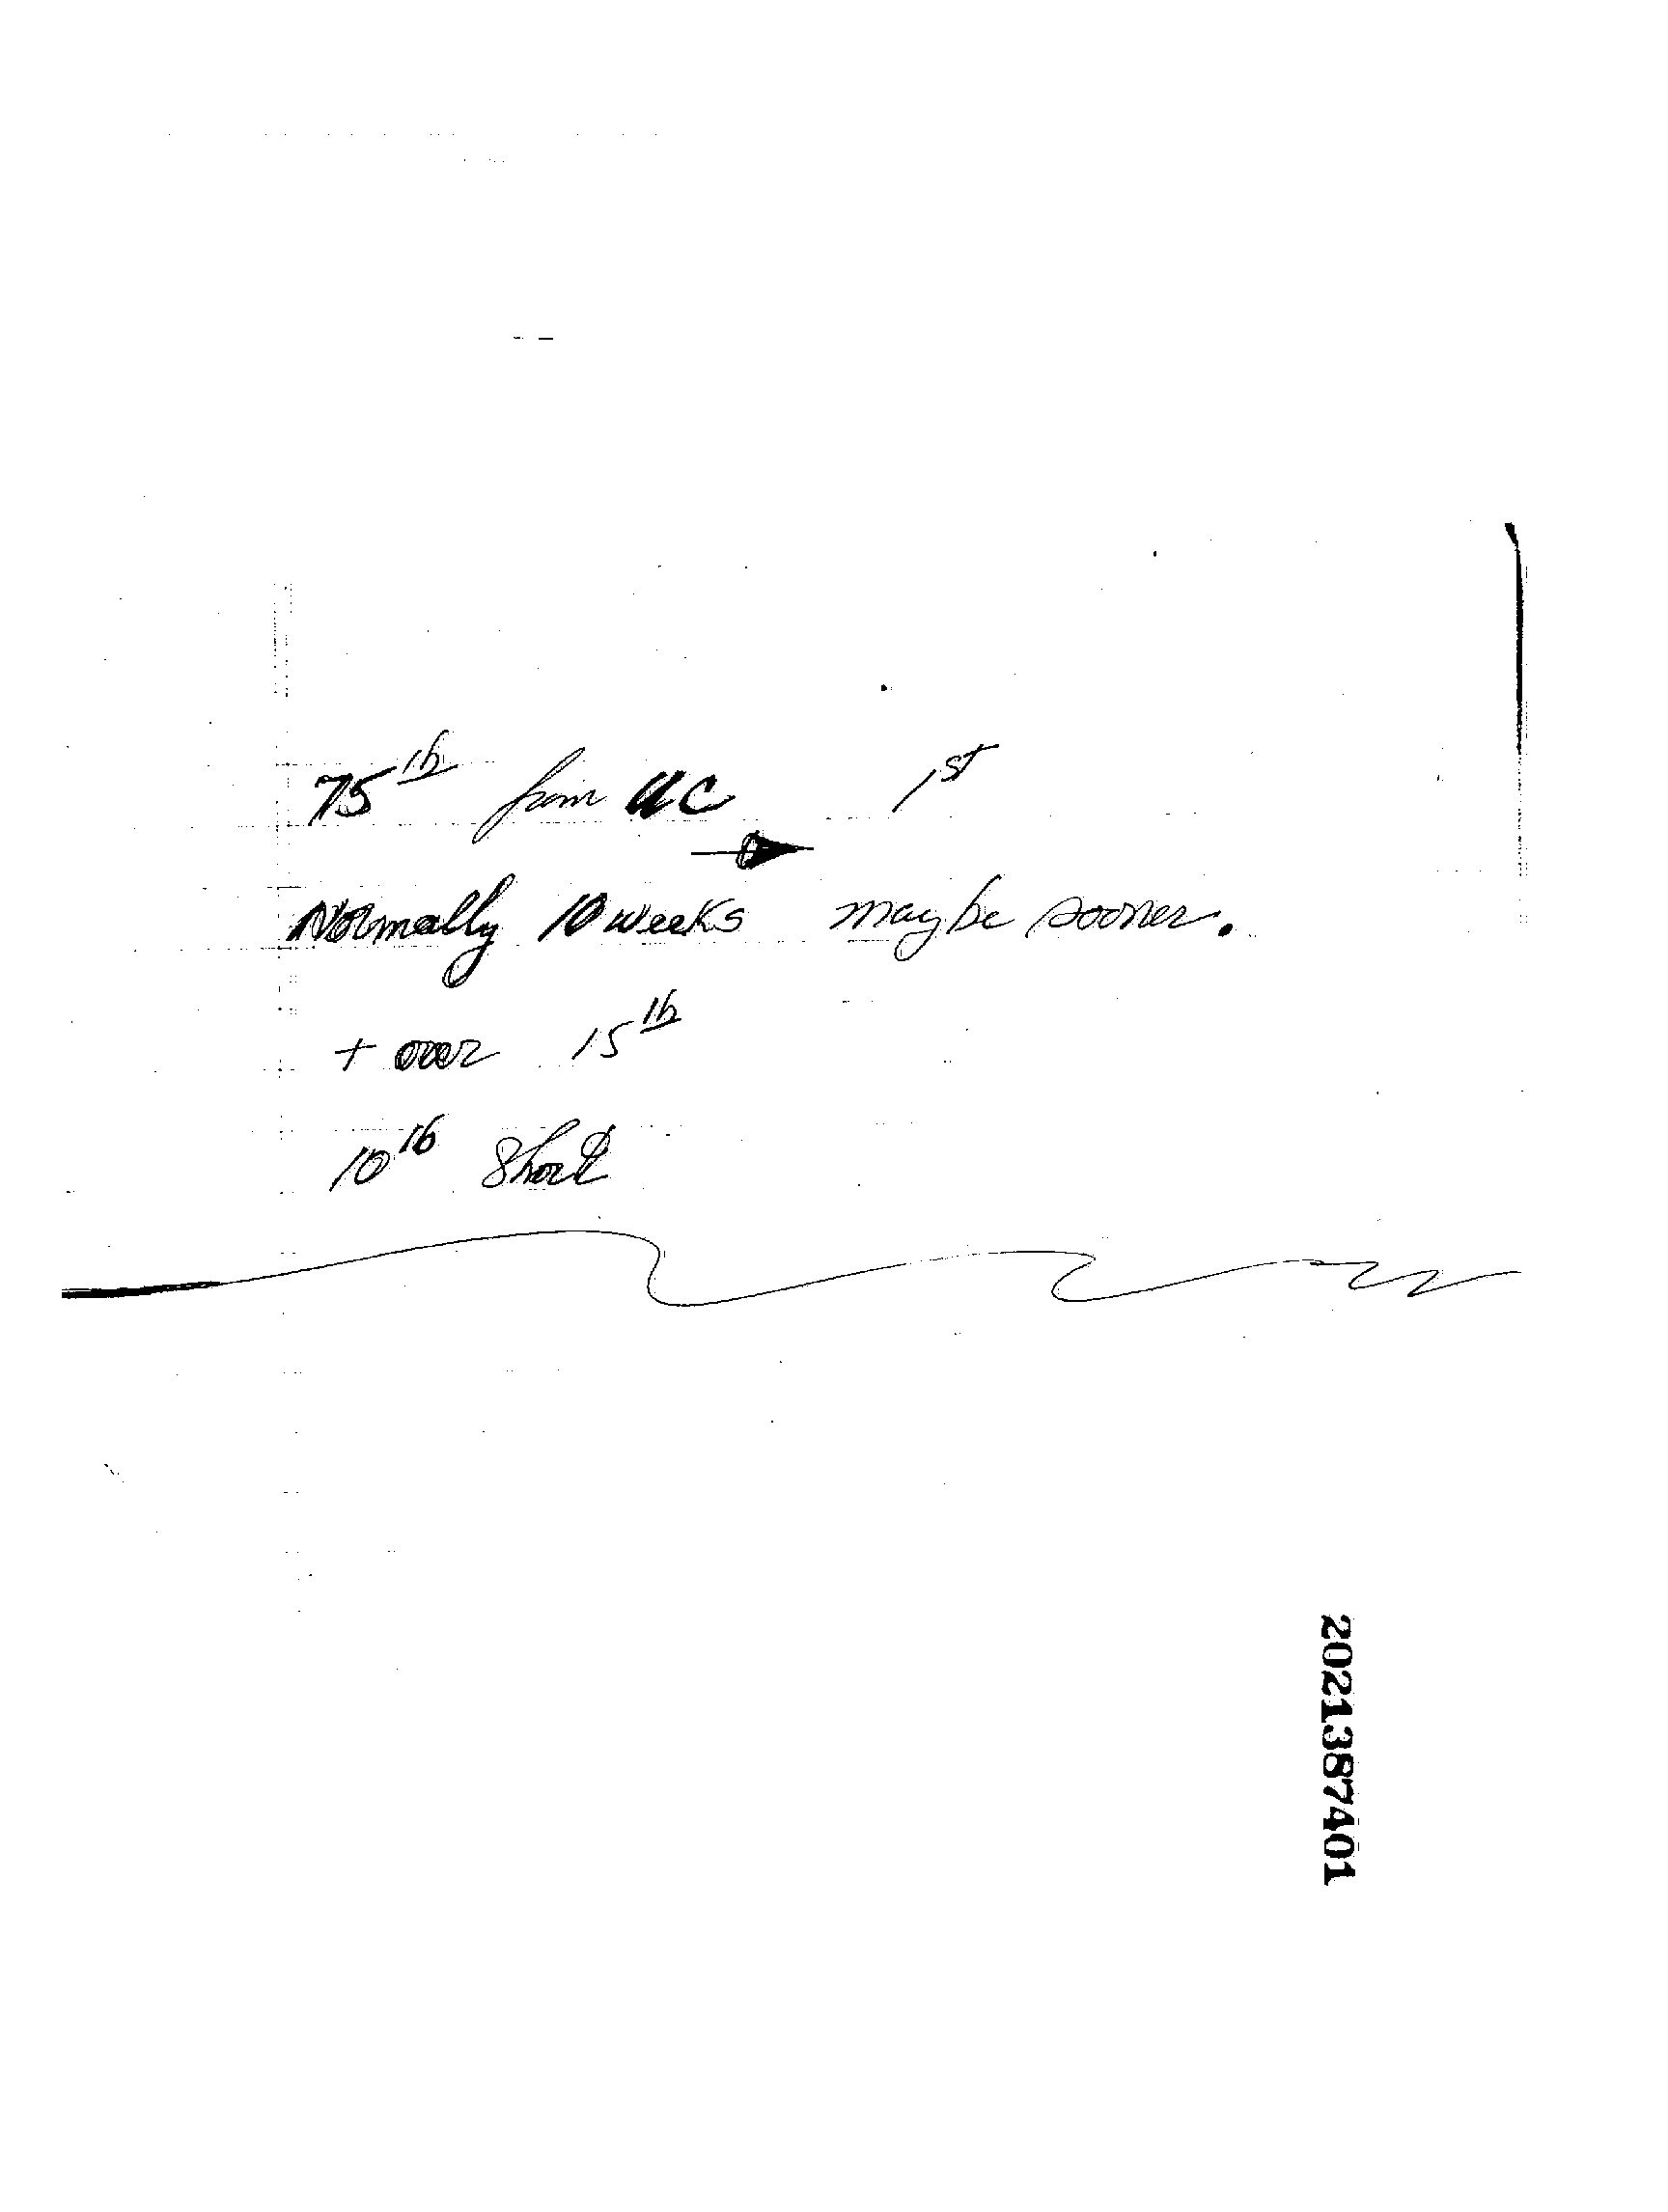 75 lb from UC 1st
Normally 10 weeks maybe sooner.
+ over 15 lb
10 lb Short
2021387401